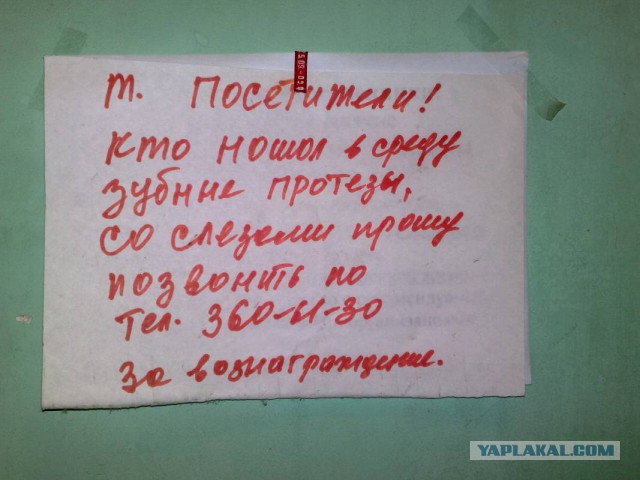 т. Посетители!
Кто ношол в среду
зубние протезы,
со слезами прошу
позвонить по
тел. 360-61-30
За вознаграждение.
YAPLAKAL.COM